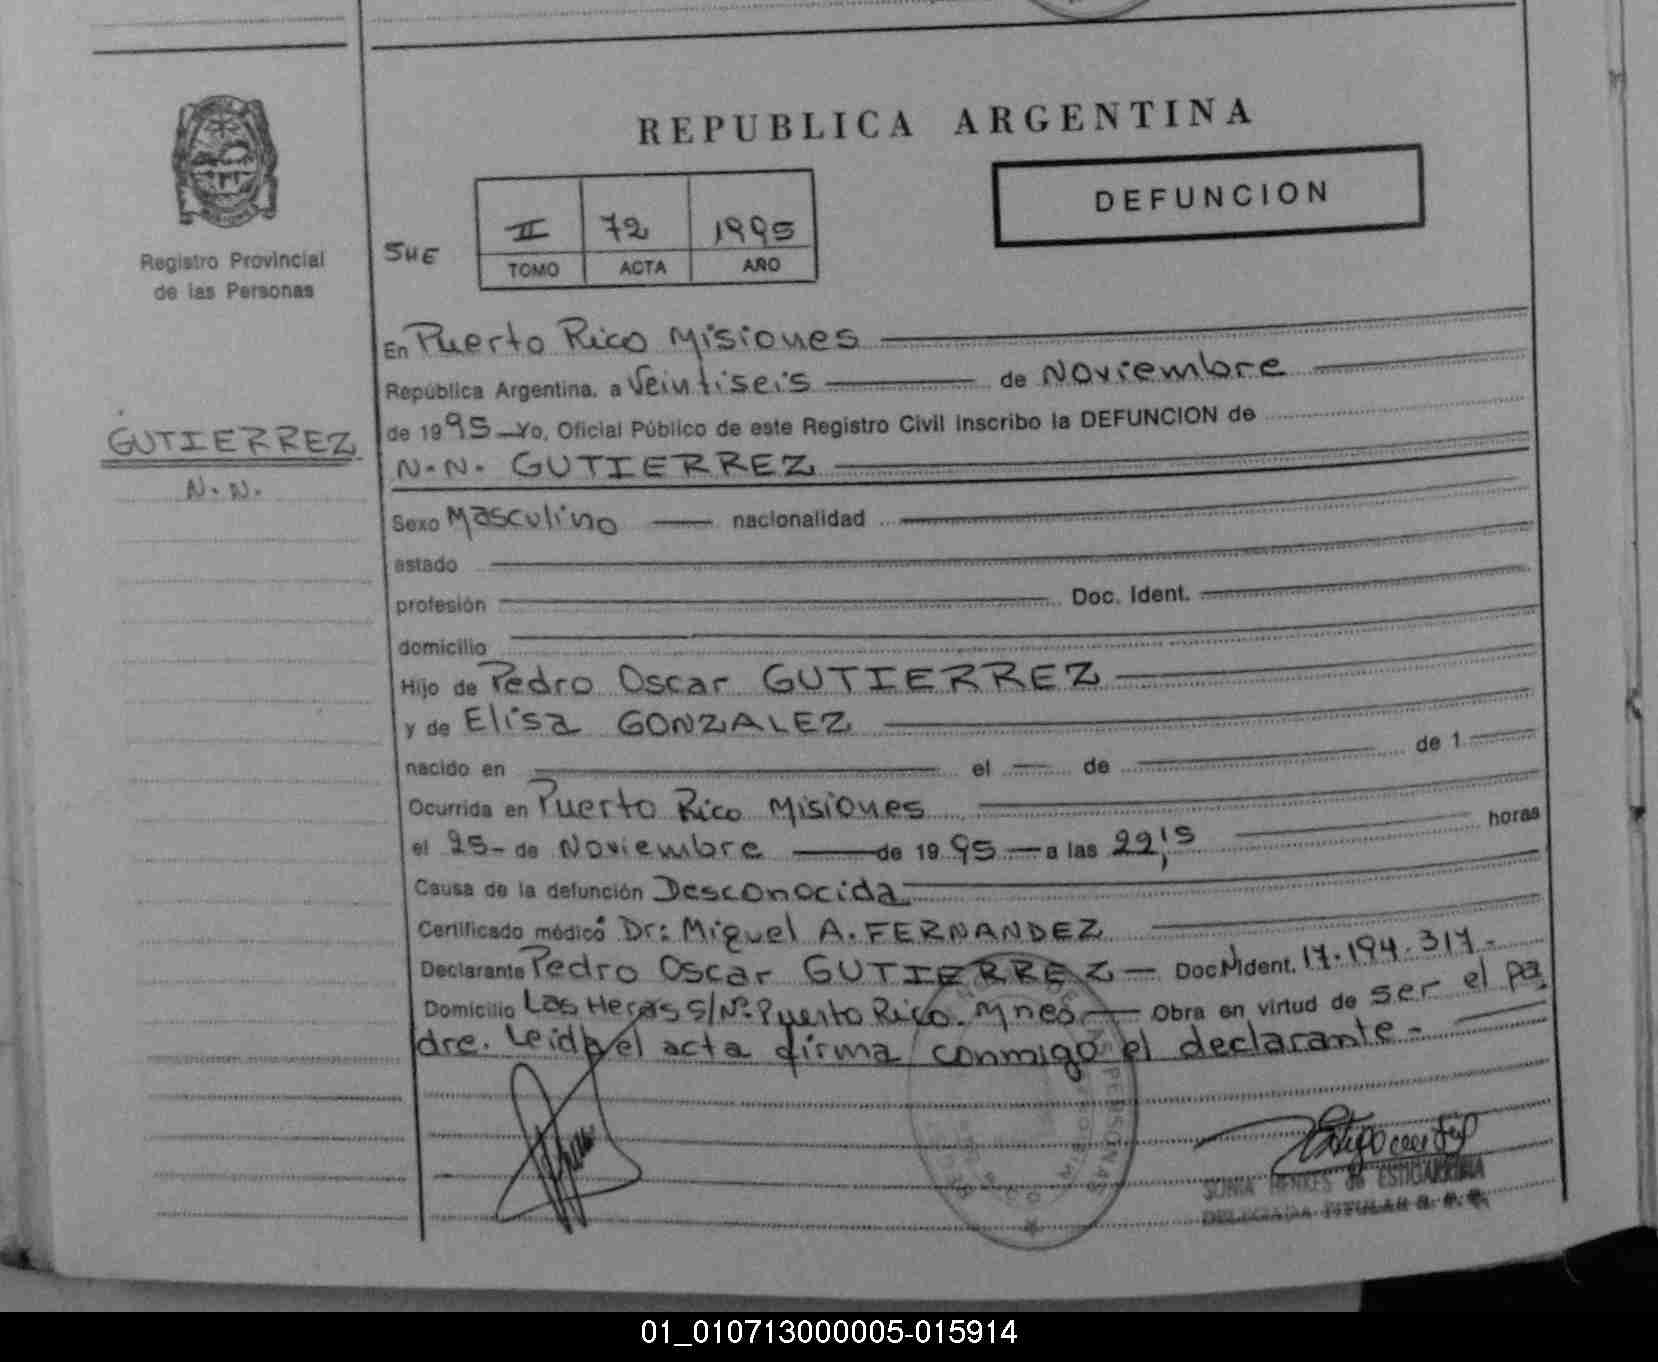 REPUBLICA ARGENTINA
DEFUNCION
Registro Provincial
de las Personas
SUE
II 72 1995
TOMO ACTA AÑO
GUTIERREZ
N.N.
En Puerto Rico Misiones
República Argentina, a Veintiseis de Noviembre
de 1995 Yo, Oficial Público de este Registro Civil inscribo la DEFUNCION de
N.N. GUTIERREZ
Sexo Masculino nacionalidad
estado
profesión Doc. Ident.
domicilio
Hijo de Pedro Oscar GUTIERREZ
y de Elisa GONZALEZ
nacido en el de de 1
Ocurrida en Puerto Rico Misiones
el 25- de Noviembre de 1995 a las 22,15 horas
Causa de la defunción Desconocida
Certificado médico Dr: Miguel A. FERNANDEZ
Declarante Pedro Oscar GUTIERREZ Doc. Ident. 17.194.317-
Domicilio Las Heras S/Nº Puerto Rico. Mnes Obra en virtud de ser el pa
dre. Leida el acta firma conmigo el declarante.-
SONIA HENKES de ESTIGARRIBIA
DELEGADA TITULAR
01_010713000005-015914